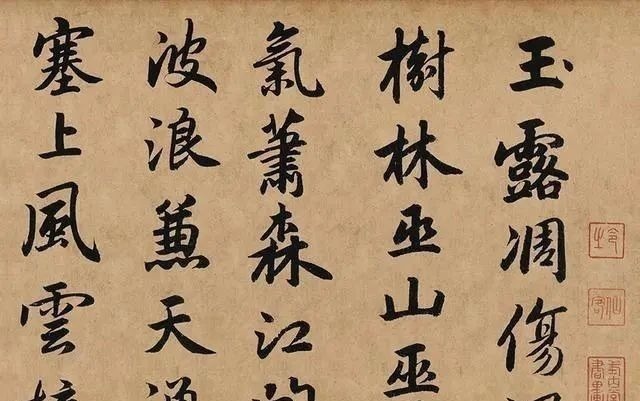 玉露凋傷
樹林巫山巫
氣蕭森江
波浪兼天
塞上風雲